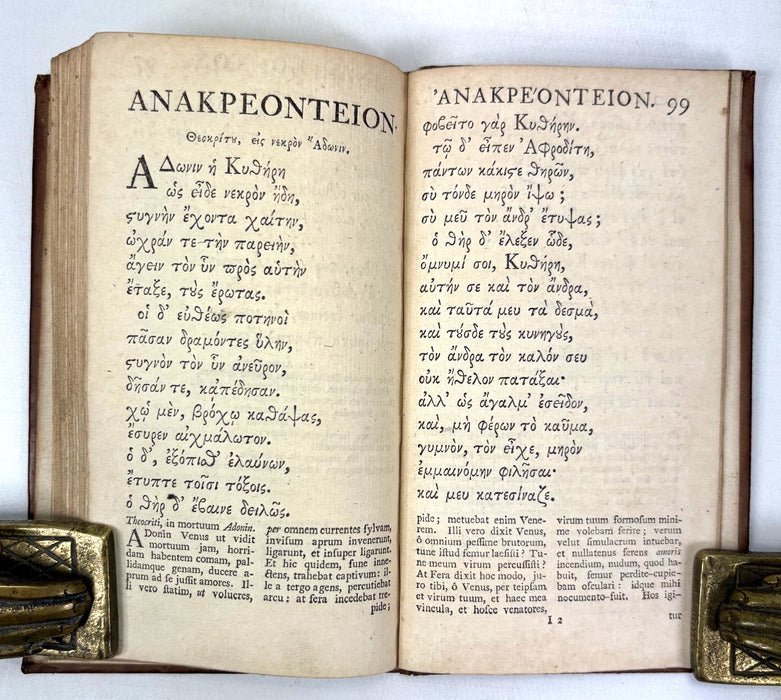 ΑΝΑΚΡΕΟΝΤΕΙΟΝ.
Θεοκρίτȣ, εἰς νεκρὸν Ἄδωνιν.
ΑΔωνιν ἡ Κυθήρη
ὡς εἶδε νεκρὸν ἤδη,
ϛυγνὴν ἔχοντα χαίταν,
ὠχράν τε τὴν παρειὴν,
ἄγειν τὸν ὗν πρὸς αὐτὴν
ἔταξε, τȣ̀ς ἔρωτας.
οἱ δ' εὐθέως ποτηνοὶ
πᾶσαν δραμόντες ὕλην,
ϛυγνὸν τὸν ὗν ἀνεῦρον,
δῆσάν τε, κἀπέδησαν.
χᾠ μὲν, βρόχῳ καθάψας,
ἔσυρεν αἰχμάλωτον.
ὁ δ', ἐξόπιθ' ἐλαύνων,
ἔτυπτε τοῖσι τόξοις.
ὁ θὴρ δ' ἔβαινε δειλῶς.
Theocriti, in mortuum Adonin.
ADonin Venus ut vidit
mortuum jam, horri-
dam habentem comam, pal-
lidamque genam, ducere a-
prum ad se jussit amores. Il-
li vero statim, ut volucres,
per omnem currentes sylvam,
invisum aprum invenerunt,
ligarunt, et insuper ligarunt.
Et hic quidem, fune inne-
ctens, trahebat captivum: il-
le a tergo agens, percutiebat
arcu: at fera incedebat tre-
pide;
ἈΝΑΚΡΕΌΝΤΕΙΟΝ. 99
φοβεῖτο γὰρ Κυθήρην.
τῷ δ' εἶπεν Ἀφροδίτη,
πάντων κάκιϛε θηρῶν,
σὺ τόνδε μηρὸν ἴψω;
σὺ μεῦ τὸν ἄνδρ' ἔτυψας;
ὁ θὴρ δ' ἔλεξεν ὧδε,
ὄμνυμί σοι, Κυθήρη,
αὐτήν σε καὶ τὸν ἄνδρα,
καὶ ταῦτά μευ τὰ δεσμὰ,
καὶ τȣ́σδε τȣ̀ς κυνηγȣ́ς,
τὸν ἄνδρα τὸν καλόν σευ
οὐκ ἤθελον πατάξαι·
ἀλλ' ὡς ἄγαλμ' ἐσεῖδον,
καὶ, μὴ φέρων τὸ καῦμα,
γυμνὸν, τὸν εἶχε, μηρὸν
ἐμμαινόμην φιλῆσαι·
καί μευ κατεσίναζε.
pide; metuebat enim Vene-
rem. Illi vero dixit Venus,
ô omnium pessime brutorum,
tune istud femur laesisti? Tu-
ne meum virum percussisti?
At Fera dixit hoc modo, ju-
ro tibi, ô Venus, per teipsam
et virum tuum, et haec mea
vincula, et hosce venatores,
virum tuum formosum mini-
me volebam ferire; verum
velut simulacrum intuebar,
et nullatenus ferens amoris
incendium, nudum, quod ha-
buit, femur perdite-cupie-
bam osculari: idque mihi
nocumento-fuit. Hos igi-
I 2
tur